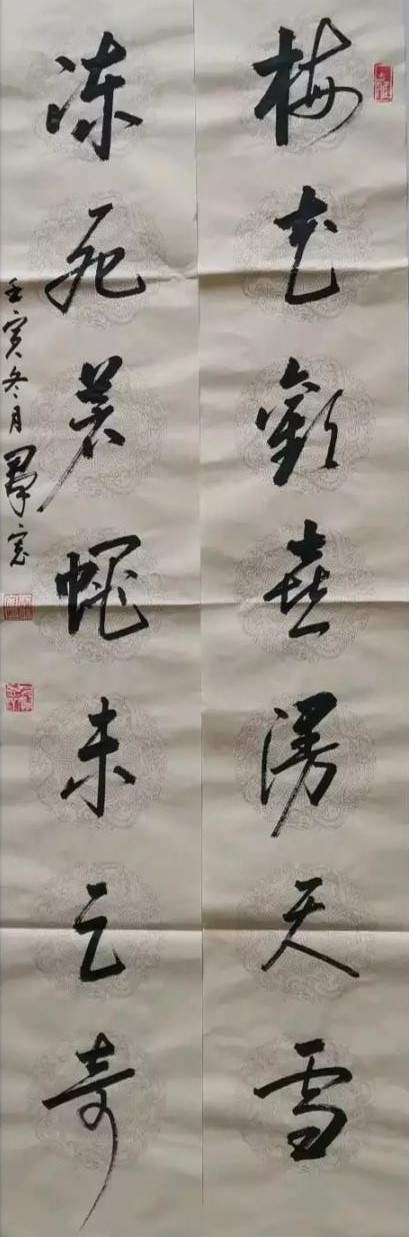 梅花歡喜漫天雪
凍死蒼蠅未足奇
壬寅冬月